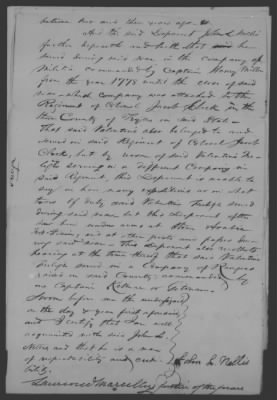 between two and three years ago
And the said Deponent John L. Nellis
further deposeth and saith that said
served during said war in the company of
Militia commanded by Captain Henry Miller
from the year 1778 until the close of said
war which Company was attached to the
Regiment of Colonel Jacob Klock in the
then County of Tryon in said State
That said Valentine also belonged to and
served in said Regiment of Colonel Jacob
Clock, but by reason of said Valentine
serving in a Different Company in
said Regiment, this Deponent is unable to
say on how many expeditions or on what
tours of duty said Valentine served
during said war but this deponent often
saw him under arms at
and at other posts and places during
said war This deponent also recollects
hearing at the time
served in a Company of Rangers
raised in said County commanded by
one Captain
Sworn before me the undersigned
on the day & year first aforesaid
and I certify that I am well
acquainted with said John L.
Nellis and that he is a man
of respectability and credi
bility.
John L. Nellis
Lawrence Marcellus Justice of the peace